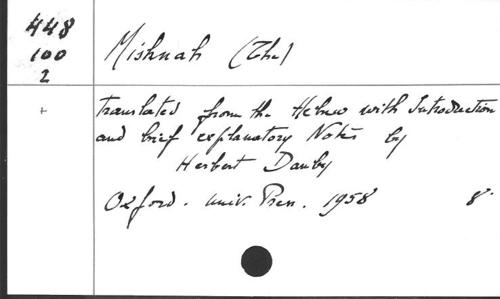 448
100
2
Mishnah (The)
+
translated from the Hebrew with Introduction
and brief explanatory Notes by
Herbert Danby
Oxford. Univ. Press. 1958 8°